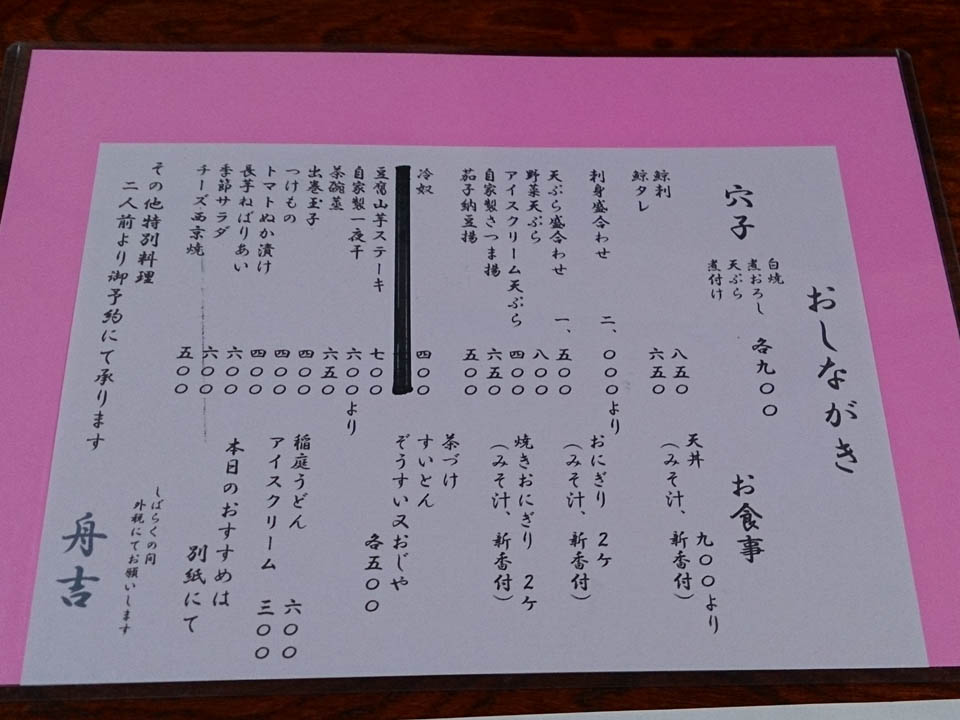 おしながき
穴子
白焼
煮おろし
天ぷら
煮付け
各九〇〇
鯨刺 八五〇
鯨タレ 六五〇
刺身盛合わせ 二、〇〇〇より
天ぷら盛合わせ 一、五〇〇
野菜天ぷら 八〇〇
アイスクリーム天ぷら 四〇〇
自家製さつま揚 六五〇
茄子納豆揚 五〇〇
冷奴 四〇〇
豆腐山芋ステーキ 七〇〇
自家製一夜干 六〇〇より
茶碗蒸 六五〇
出巻玉子 四〇〇
つけもの 四〇〇
トマトぬか漬け 四〇〇
長芋ねばりあい 六〇〇
季節サラダ 六〇〇
チーズ西京焼 五〇〇
その他特別料理
二人前より御予約にて承ります
お食事
天丼 九〇〇より
（みそ汁、新香付）
おにぎり 2ケ
（みそ汁、新香付）
焼きおにぎり 2ケ
（みそ汁、新香付）
茶づけ
すいとん
ぞうすい又おじや
各五〇〇
稲庭うどん 六〇〇
アイスクリーム 三〇〇
本日のおすすめは
別紙にて
しばらくの間
外税にてお願いします
舟吉